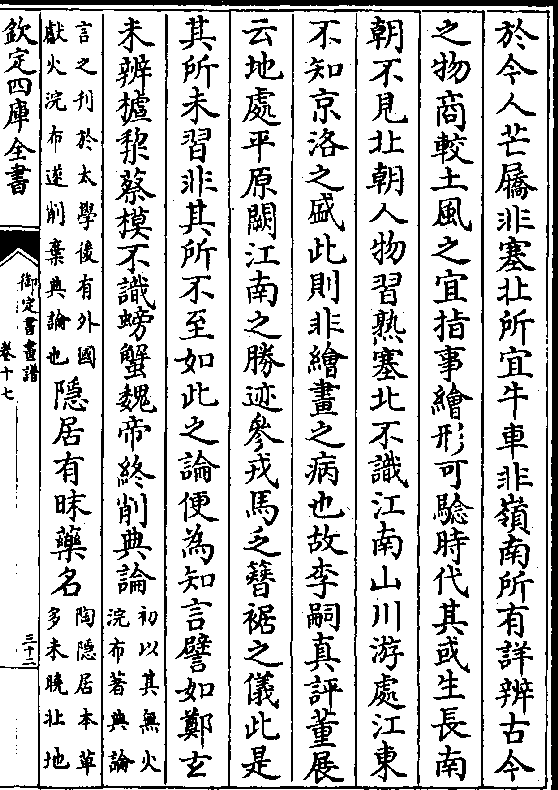 於今人芒屩非塞北所宜牛車非嶺南所有詳辨古今
之物商較土風之宜指事繪形可驗時代其或生長南
朝不見北朝人物習熟塞北不識江南山川游處江東
不知京洛之盛此則非繪畫之病也故李嗣真評董展
云地處平原闕江南之勝迹參戎馬乏簪裾之儀此是
其所未習非其所不至如此之論便為知言譬如鄭玄
未辨樝棃蔡模不識螃蟹魏帝終削典論
初以其無火
浣布著典論
言之刊於太學後有外國
獻火浣布遂削棄典論也
隱居有昧藥名
陶隱居本草
多未曉北地
欽定四庫全書
御定書畫譜
卷十七
三十二